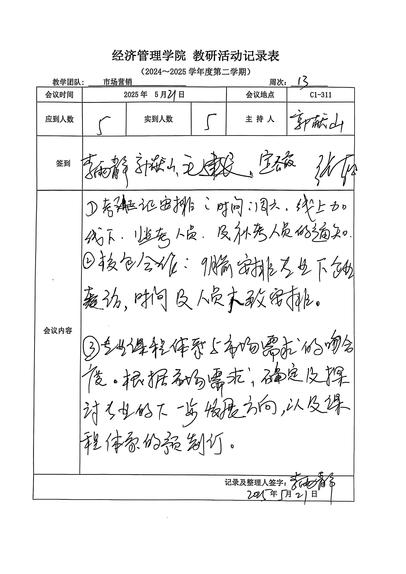 经济管理学院 教研活动记录表
（2024～2025 学年度第二学期）
教学团队: 市场营销 周次: 13
会议时间 2025 年 5月21日 会议地点 C1-311
应到人数 5 实到人数 5 主 持 人 郭献山
签到 李雨静 郭献山
会议内容
① 考证安排：时间:周六，线上加
线下．监考人员．及补考人员的通知.
② 校企合作： 安排专业下企业
走访，时间及人员大致安排。
③ 专业课程体系与市场需求的吻合
度。根据市场需求，确定及探
讨专业的下一步发展方向，以及课
程体系的预制订。
记录及整理人签字: 李雨静
2025年5月21日